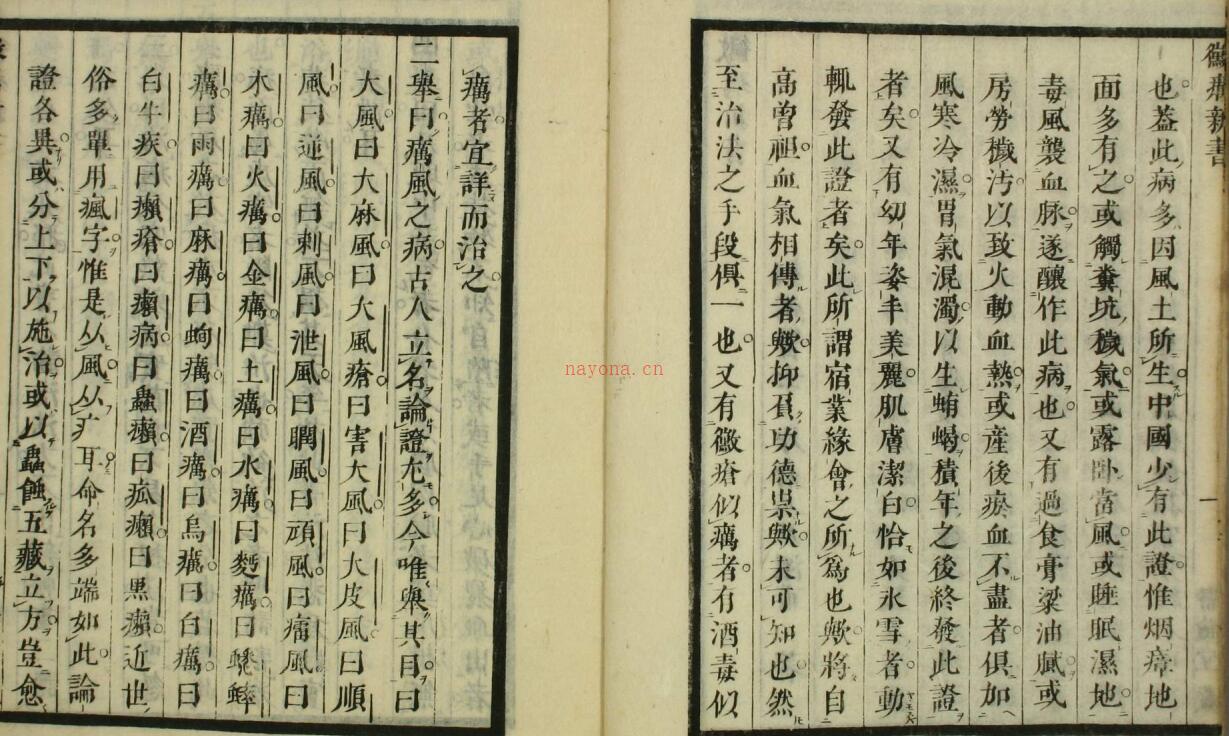 黴癘新書
也蓋此病多因風土所生中國少有此證惟烟瘴地
面多有之或觸糞坑穢氣或露卧當風或睡眠濕地
毒風襲血脉遂釀作此病也又有過食膏粱油膩或
房勞穢汚以致火動血熱或産後瘀血不盡者俱加
風寒冷濕胃氣混濁以生蛕蝎積年之後終發此證
者矣又有幼年姿丰美麗肌膚潔白恰如氷雪者動
輒發此證者矣此所謂宿業緣會之所爲也歟將自
高曽祖血氣相傳者歟抑負功德祟歟未可知也然
至治法之手段俱一也又有黴瘡似癘者有酒毒似
癘者宜詳而治之
一舉曰癘風之病古人立名論證尢多今唯舉其目曰
大風曰大麻風曰大風瘡曰害大風曰大皮風曰順
風曰逆風曰刺風曰泄風曰䦧風曰頑風曰痛風曰
木癘曰火癘曰金癘曰土癘曰水癘曰麪癘曰蟋蟀
癘曰雨癘曰麻癘曰蚼癘曰酒癘曰烏癘曰白癘曰
白牛疾曰癩瘡曰癩病曰蟲癩曰疵癩曰黒癩近世
俗多單用瘋字惟是从風从疒耳命名多端如此論
證各異或分上下以施治或以蟲蝕五藏立方豈愈
nayona.cn